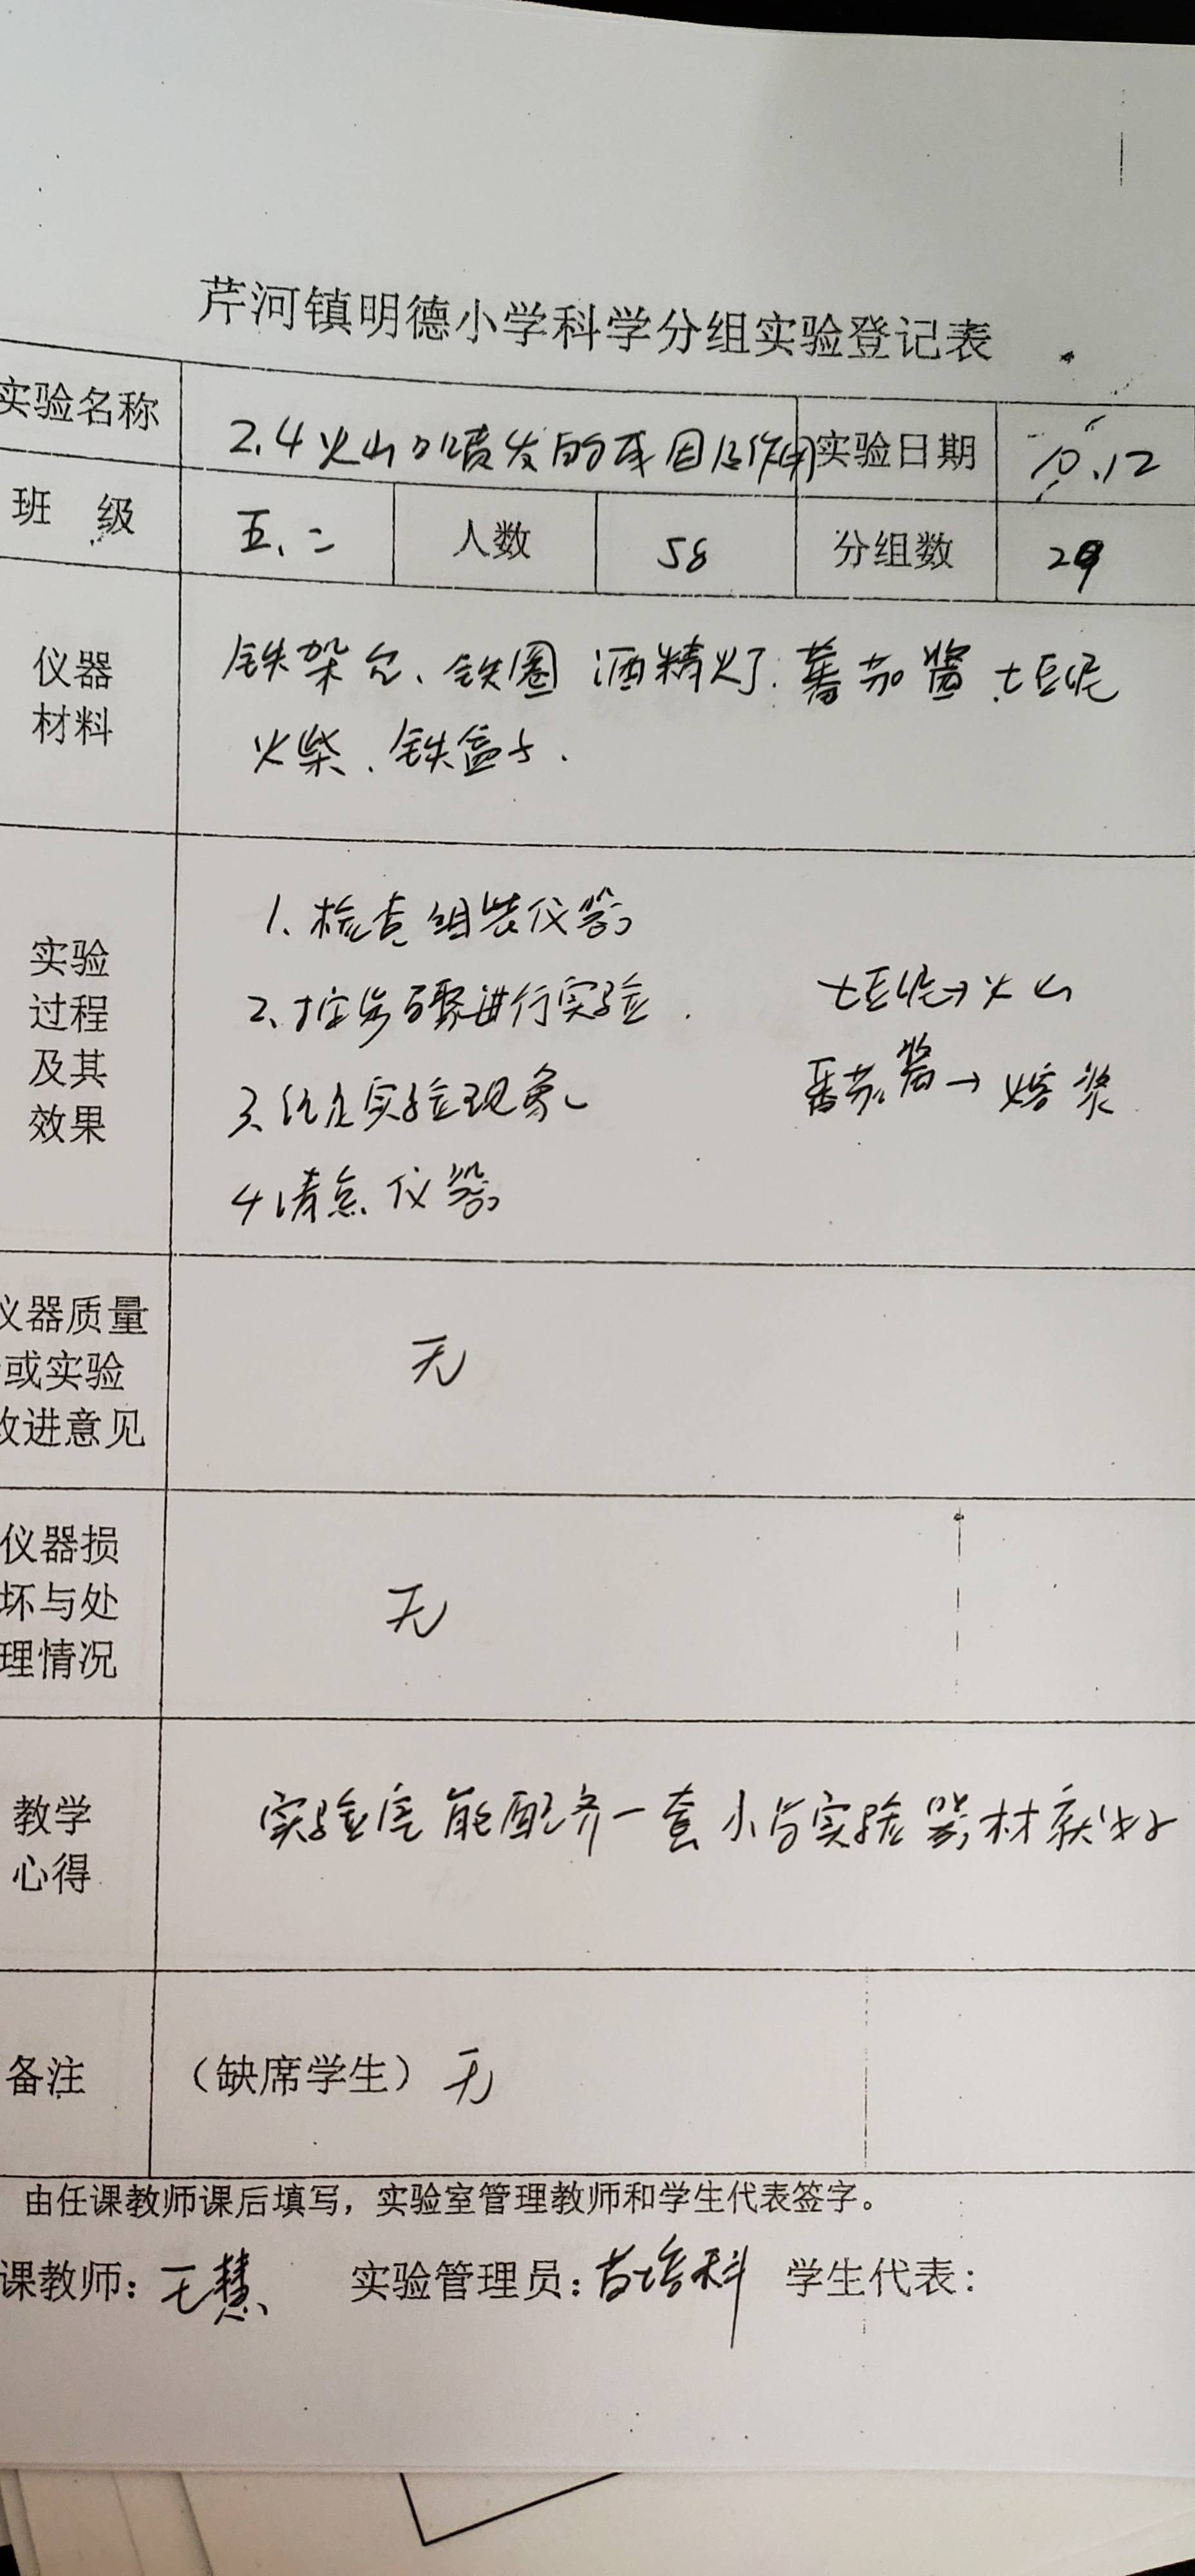 芹河镇明德小学科学分组实验登记表
实验名称 2.4火山喷发的成因及作用 实验日期 10.12
班 级 五、二 人数 58 分组数 29
仪器
材料
铁架台、铁圈 酒精灯、蕃茄酱、土豆泥
火柴、铁盒子.
实验
过程
及其
效果
1、检查组装仪器
2、按步骤进行实验. 土豆泥→火山
3、记录实验现象 番茄酱→熔浆
4、清点仪器
仪器质量
或实验
改进意见
无
仪器损
坏与处
理情况
无
教学
心得
实验室能配齐一套小学实验器材就好
备注 （缺席学生）无
由任课教师课后填写，实验室管理教师和学生代表签字。
课教师：王慧 实验管理员：苗培科 学生代表：